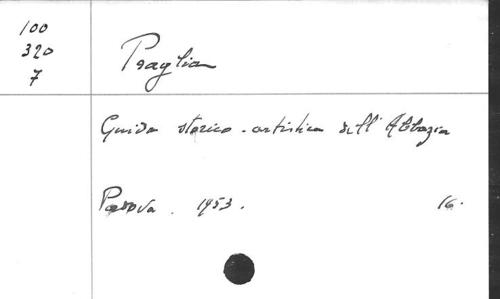 100
320
7
Praglia
Guida storico-artistica dell' Abbazia
Padova. 1953. 16.